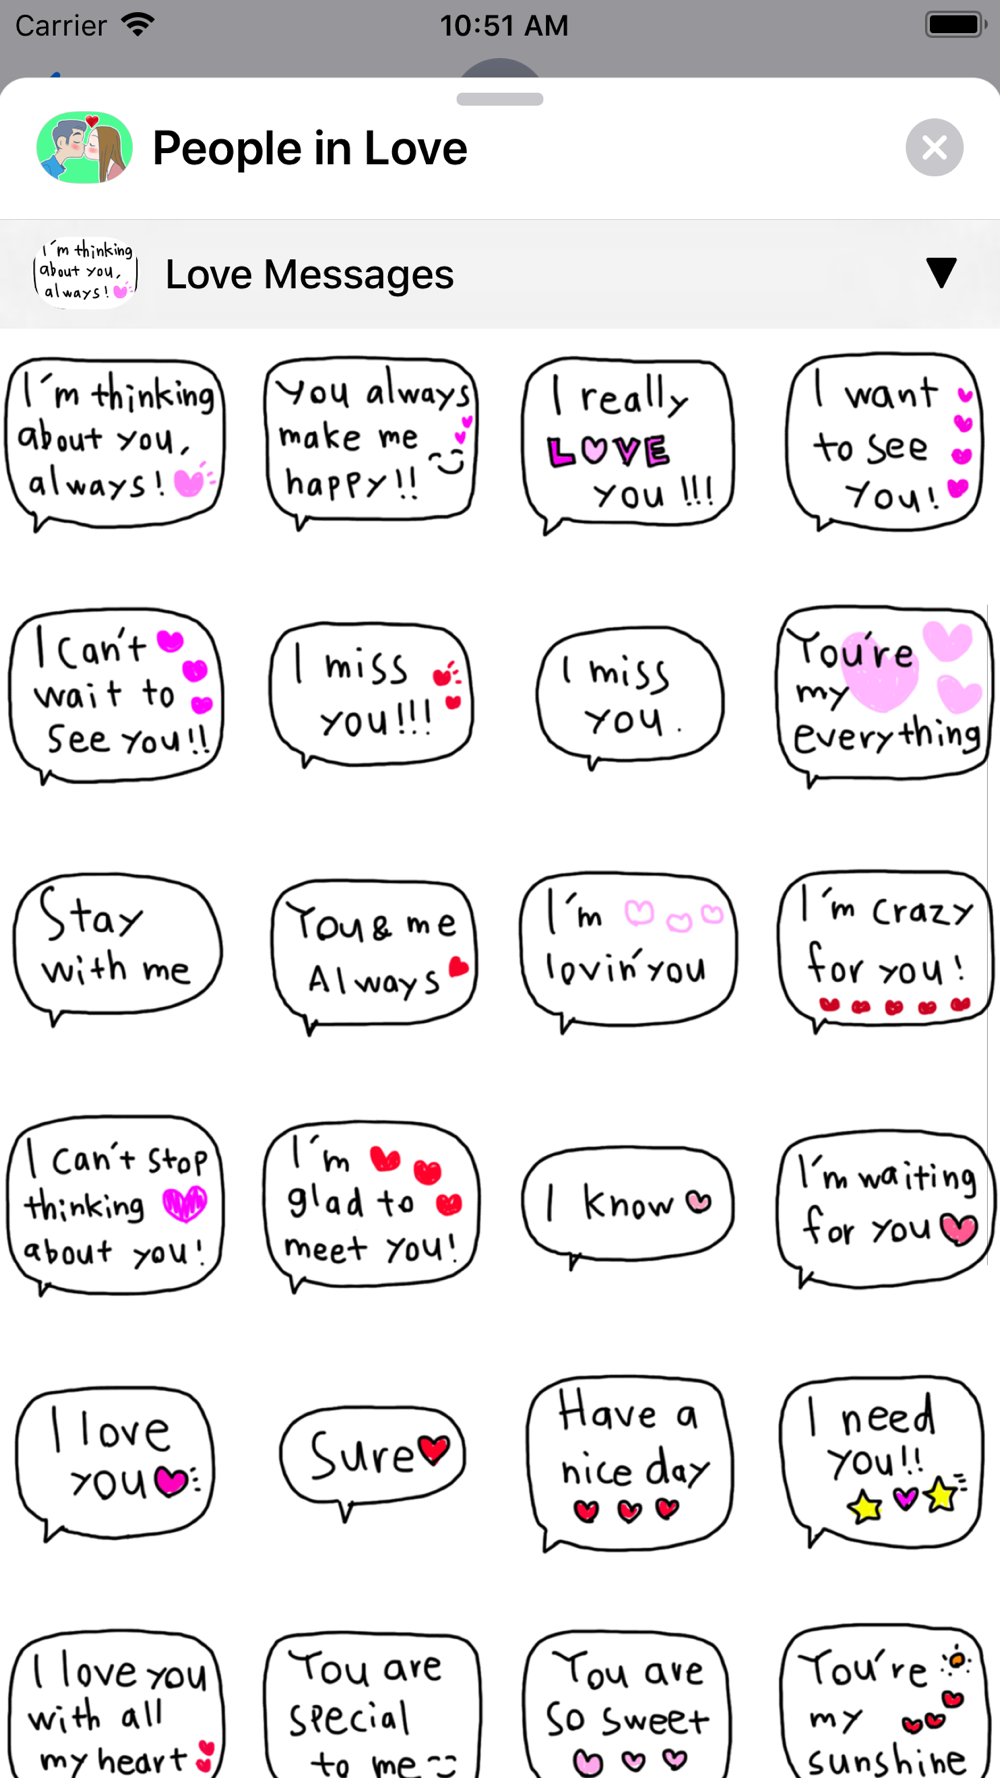 Carrier 10:51 AM
People in Love
I'm thinking
about you,
always!
Love Messages
I'm thinking
about you,
always!
You always
make me
happy!!
I really
LOVE
you!!!
I want
to see
you!
I can't
wait to
see you!!
I miss
you!!!
I miss
you.
You're
my
everything
Stay
with me
You & me
Always
I'm
lovin' you
I'm crazy
for you!
I can't stop
thinking
about you!
I'm
glad to
meet you!
I know
I'm waiting
for you
I love
you
Sure
Have a
nice day
I need
you!!
I love you
with all
my heart
You are
special
to me
You are
so sweet
You're
my
sunshine